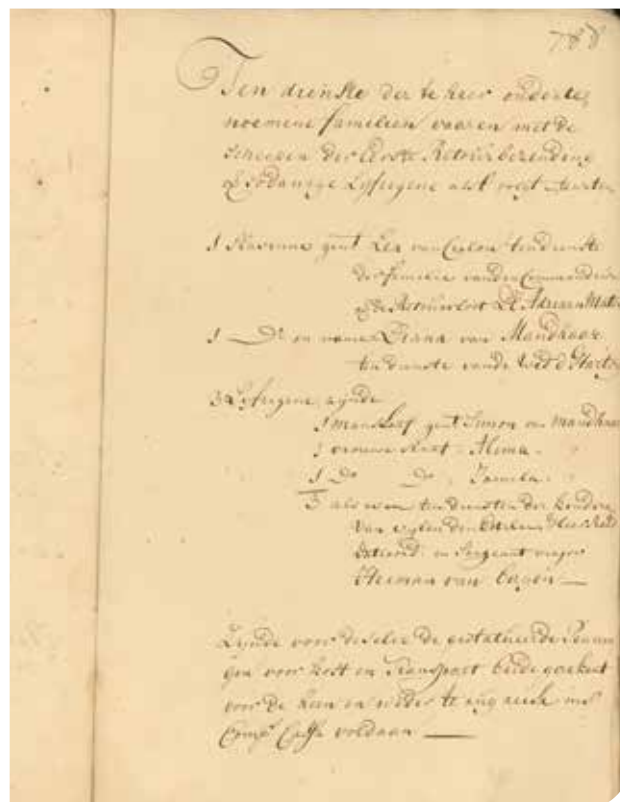 788
Ten dienste der te neer onderte
noemene familien vaaren met de
Scheepen der Eerste Retour bezending
Sodanige Lyfeigene als volgt
1 Slavinne gent Lea van Ceylon ten dienste
der familie van den Commandeur
de Adriaan
1 Do in name Diana van Mandhaar
ten dienste vande Wed
3 Lyfeigene zynde
1 manslaaf gent Simon van Mandhaar
1 vrouwe Alima
1 Do Do Jamela
3 als even ten diensten der
van wylen den
en Sergeant majoor
Herman van
Zynde voor deselve de gestatueerde Pennin
gen voor kost en Transport beide gereekent
voor de heen en weder te rug reise in's
Comps Cassa voldaan